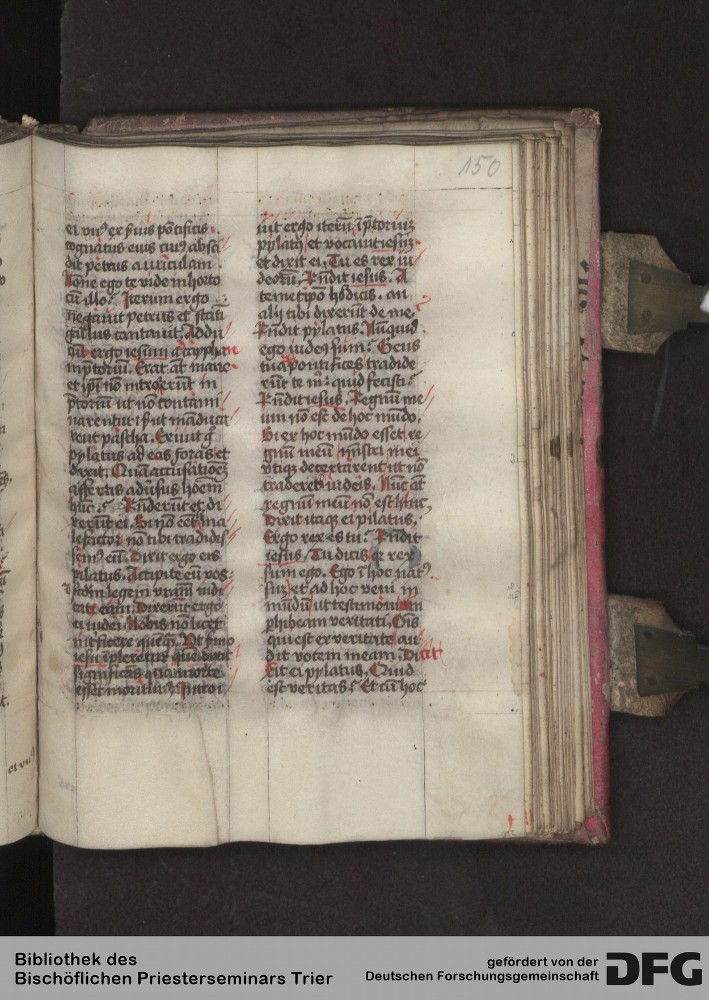 150
ei vnꝰ ex ẜuis põtificis.
cognatus eius cuiꝰ absci
dit petrus auriculam.
Nõne ego te vidi in horto
cũ illo? Iterum ergo
negauit petrus et stati
gallus cantauit. Addu
cũt ergo iesum a cayphan
in ptoriũ. Erat aũt mane
et ip̃i nõ introierũt in
p̃toriũ ut nõ contami
narentur ẜ ut mãduca
rent pascha. Exiuit gͦ
pylatus ad eos foras et
dixit. Quã accusationeꝫ
affertis aduẜus hoĩem
hũc? Rñderũt et di
xerũt ei. Si nõ eẽt ma
lefactor nõ tibi tradidis
semꝰ eũ. Dixit ergo eis
pilatus. Accipite eũ vos
et ẜcdm legem vr̃am iudi
cate eum. Dixerũt ergo
ei iudei. Nobis nõ licet
int̃ficere quẽqͣ. Vt ẜmo
iesu ĩpleretur quẽ dixit
significãs qua morte
esset moriturꝰ. Introi
uit ergo iterũ ĩ p̃toriuꝫ
pylatꝰ et vocauit iesuꝫ
et dixit ei. Tu es rex iu
deorũ. Rñdit iesus. A
temetip̃o h̃ dicis. an
alij tibi dixerũt de me.
Rñdit pylatus. Nũquid
ego iudeꝰ sum? Gens
tua et põtifices tradide
rũt te m̃. quid fecisti?
Rñdit iesus. Regnũ me
um nõ est de hoc mũdo.
Si ex hoc mũdo esset re
gnũ meũ mĩstri mei
vtiqꝫ decertarent ut nõ
traderer iudeis. Nũc aũt
regnũ meũ nõ est hinc.
Dixit itaqꝫ ei pilatus.
Ergo rex es tu? Rñdit
iesus. Tu dicis qꝛ rex
sum ego. Ego ĩ hoc natꝰ
suꝫ et ad hoc veni in
mũdũ ut testimonium
phibeam veritati. Oĩs
qui est ex veritate au
dit vocem meam. Dicit
ei pylatus. Quid
est veritas? Et cũ hoc
Bibliothek des
Bischöflichen Priesterseminars Trier
gefördert von der
Deutschen Forschungsgemeinschaft
DFG